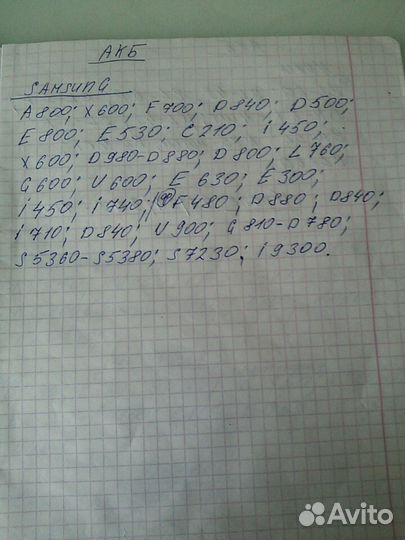 АКБ
SAMSUNG
A800; X600; F700; D840; D500;
E800; E530; C210; i450;
X600; D980-D880; D800; L760;
G600; U600; E630; E300;
i450; i740; F480; D880; D840;
i710; D840; U900; G810-D780;
S5360-S5380; S7230; i9300.
Avito